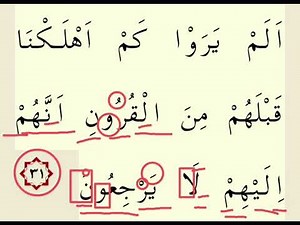 اَلَمْ يَرَوْا كَمْ اَهْلَكْنَا
قَبْلَهُمْ مِنَ الْقُرُوْنِ اَنَّهُمْ
اِلَيْهِمْ لَا يَرْجِعُوْنَ ٣١